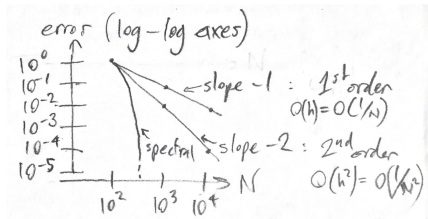 error (log-log axes)
10⁰
10⁻¹
10⁻²
10⁻³
10⁻⁴
10⁻⁵
slope -1 : 1st order
O(h)=O(1/N)
spectral
slope -2 : 2nd order
O(h²)=O(1/N²)
N
10² 10³ 10⁴